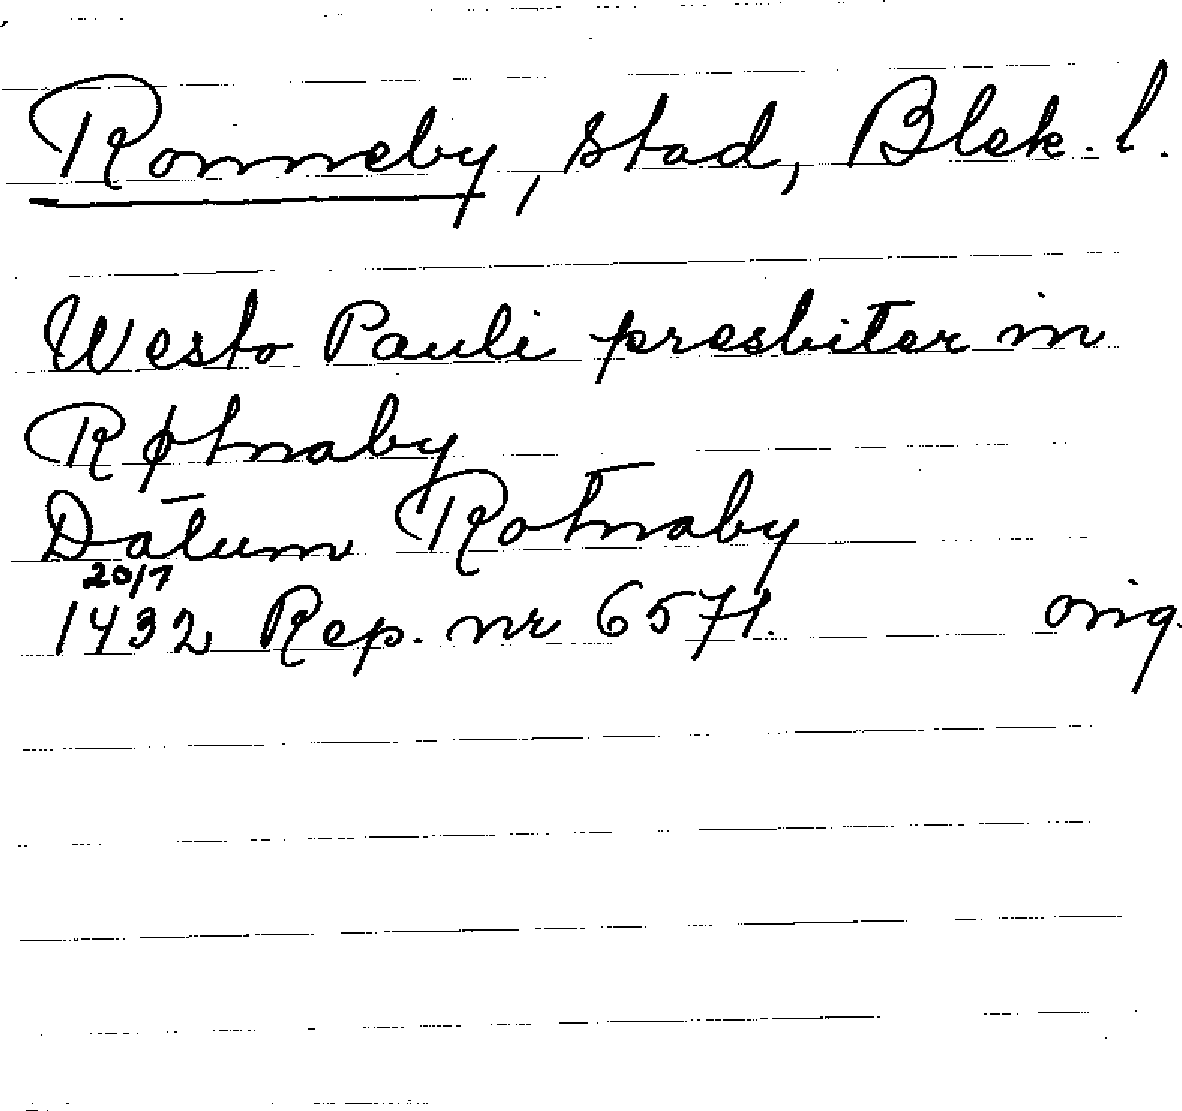 Ronneby, stad, Blek. l.
Westo Pauli presbiter in
Røtnaby
Datum Rotnaby
20/7
1432 Rep. nr 6571. orig.